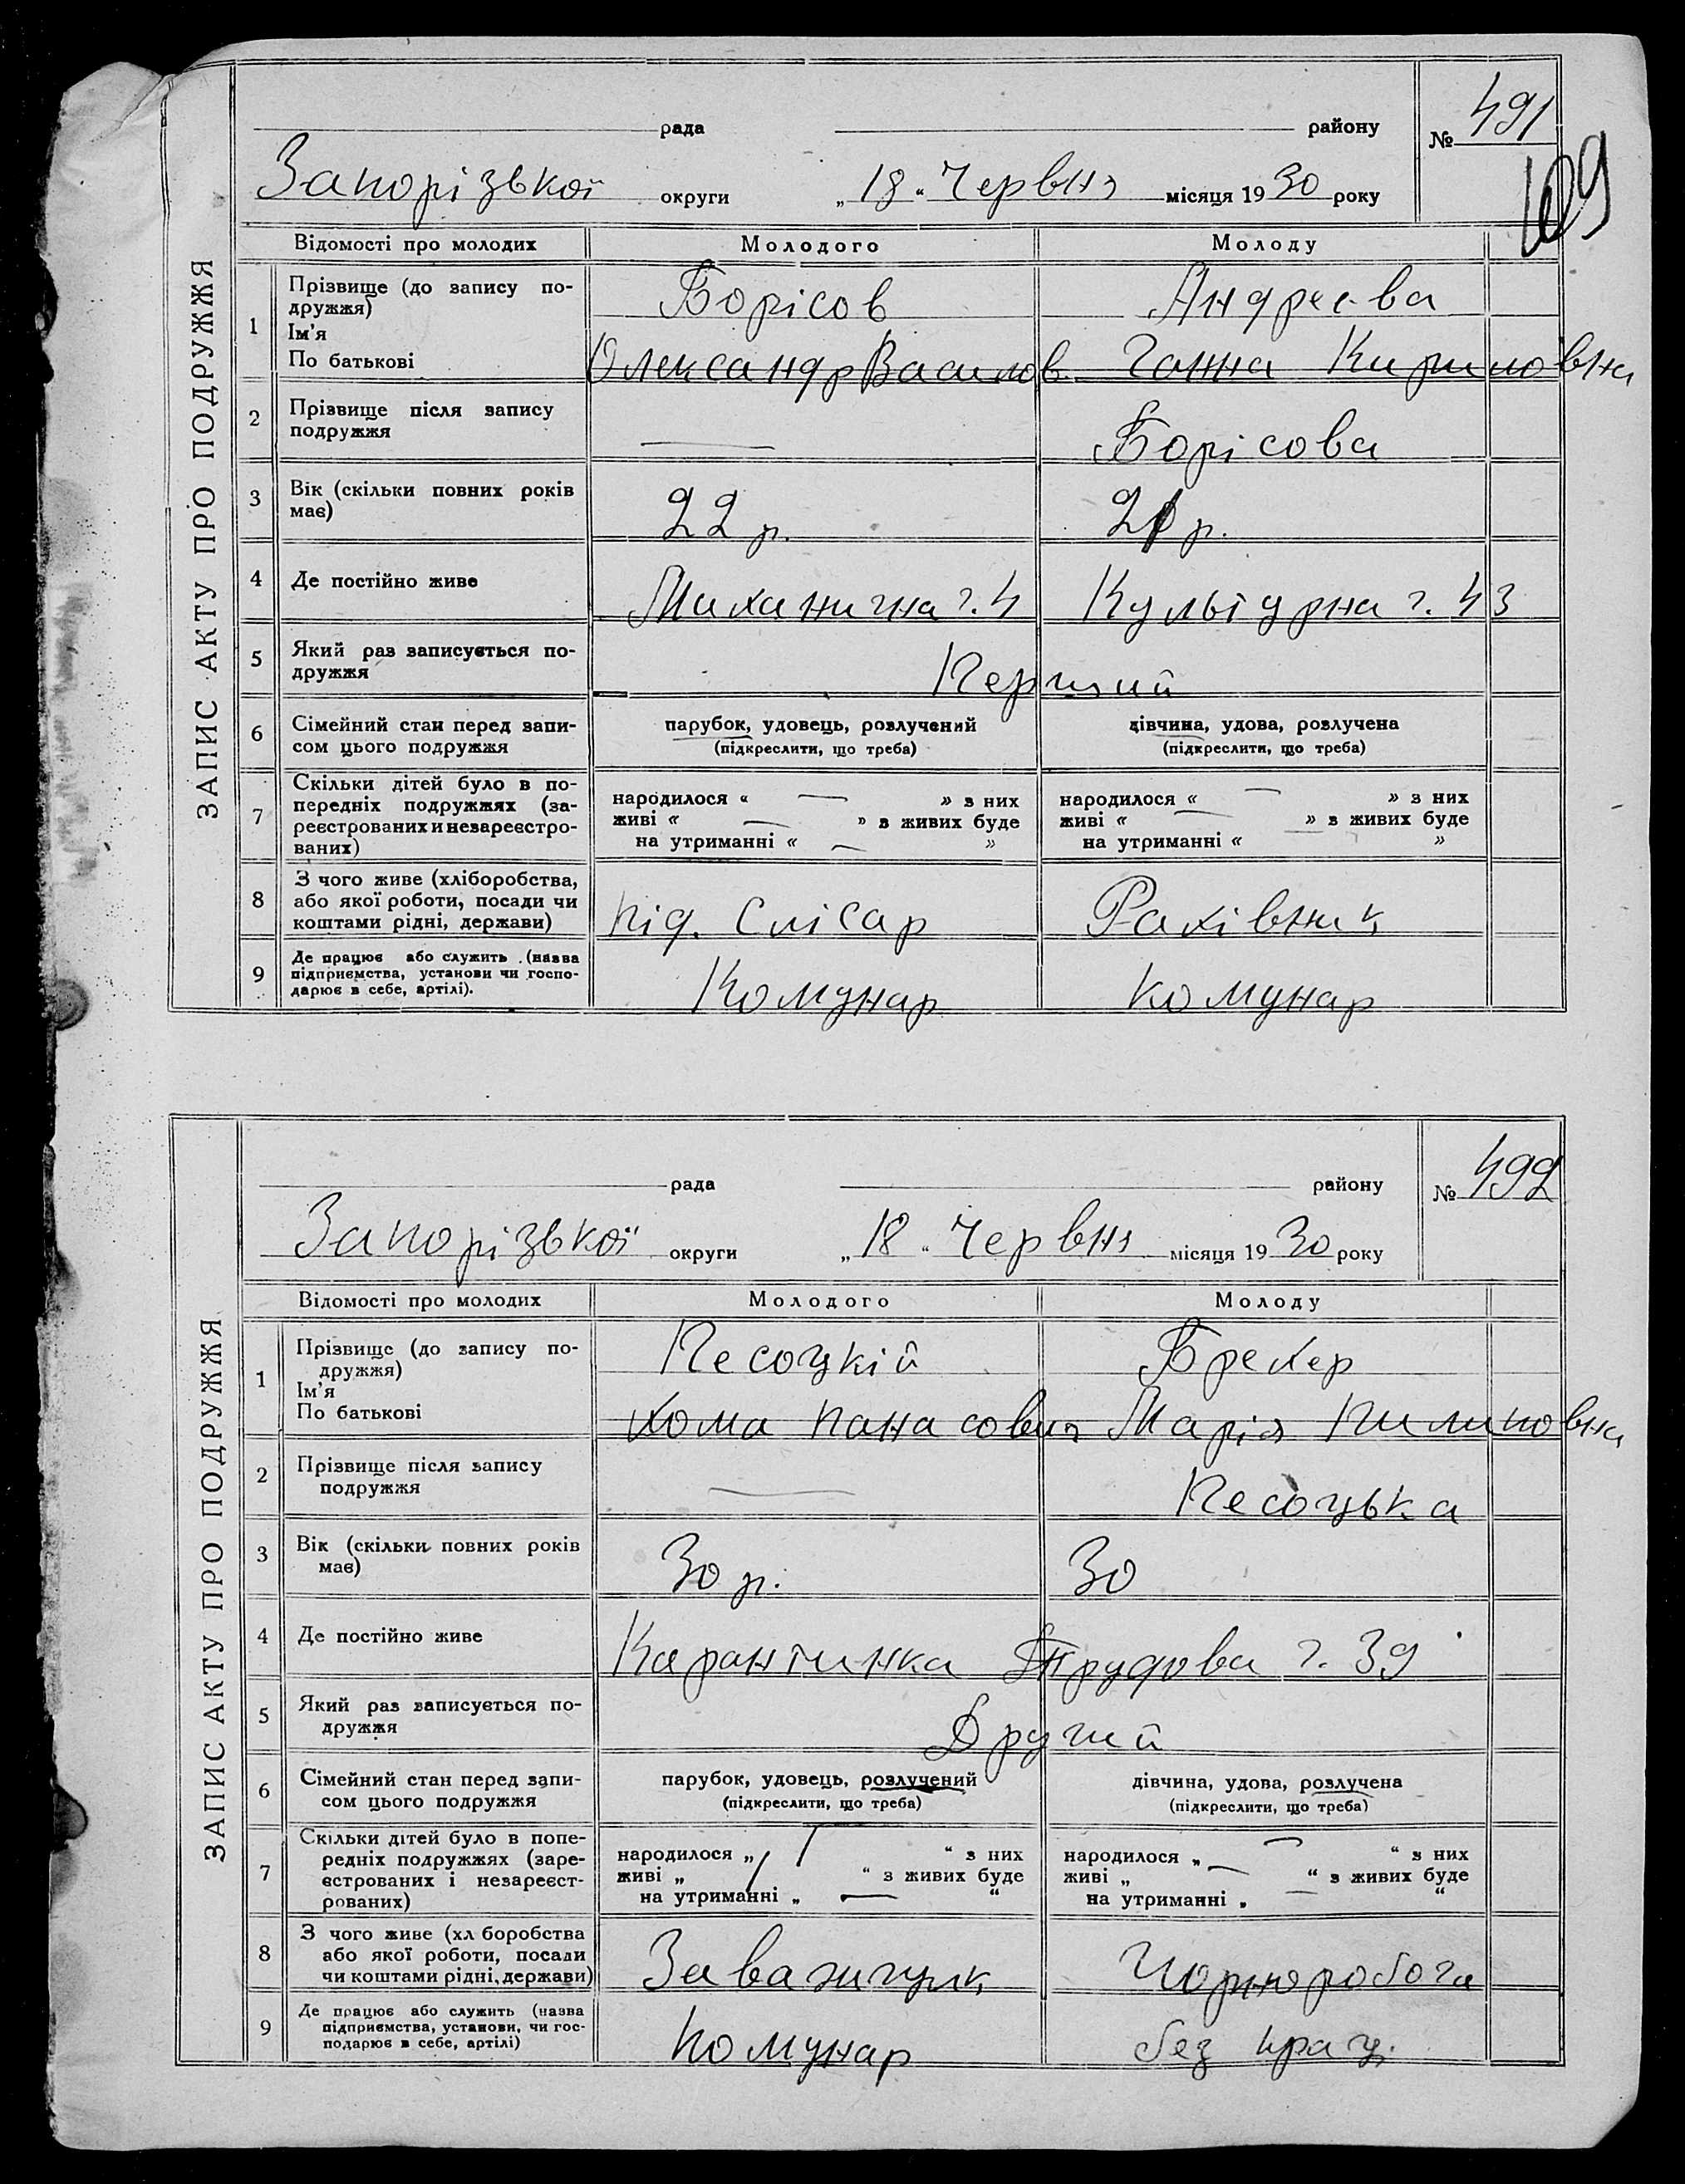 ЗАПИС АКТУ ПРО ПОДРУЖЖЯ
рада району № 491
109
Запорізької округи „18“ Червня місяця 1930 року
Відомості про молодих Молодого Молоду
1 Прізвище (до запису по-
дружжя) Борісов Андреева
Ім'я
По батькові Олександр Василов Ганна Кириловвна
2 Прізвище після запису
подружжя — Борісова
3 Вік (скільки повних років
має) 22 р. 21 р.
4 Де постійно живе Миханична ч. 4 Культурна ч. 43
5 Який раз записується по-
дружжя Перший
6 Сімейний стан перед запи-
сом цього подружжя
парубок, удовець, розлучений дівчина, удова, розлучена
(підкреслити, що треба) (підкреслити, що треба)
7 Скільки дітей було в по-
передніх подружжях (за-
реєстрованих и незареєстро-
ваних)
народилося « — » з них народилося « — » з них
живі « — » з живих буде живі « — » з живих буде
на утриманні « — » на утриманні « — »
8 З чого живе (хліборобства,
або якої роботи, посади чи
коштами рідні, держави) під. Слісар Рахівник
9 Де працює або служить (назва
підприємства, установи чи госпо-
дарює в себе, артілі). Комунар Комунар
ЗАПИС АКТУ ПРО ПОДРУЖЖЯ
рада району № 492
Запорізької округи „18“ Червня місяця 1930 року
Відомості про молодих Молодого Молоду
1 Прізвище (до запису по-
дружжя) Песоцкій Брехер
Ім'я
По батькові Хома Панасович Марія Пилиповна
2 Прізвище після запису
подружжя — Песоцька
3 Вік (скільки повних років
має) 30 р. 30
4 Де постійно живе Карантинка Трудова ч. 39
5 Який раз записується по-
дружжя Другий
6 Сімейний стан перед запи-
сом цього подружжя
парубок, удовець, розлучений дівчина, удова, розлучена
(підкреслити, що треба) (підкреслити, що треба)
7 Скільки дітей було в попе-
редніх подружжях (заре-
єстрованих і незареєст-
рованих)
народилося „ 1 “ з них народилося „ — “ з них
живі „ 1 “ з живих буде живі „ — “ з живих буде
на утриманні „ — “ на утриманні „ — “
8 З чого живе (хл боробства
або якої роботи, посади
чи коштами рідні, держави) Чорноробоча
9 Де працює або служить (назва
підприємства, установи, чи гос-
подарює в себе, артілі) Комунар без прац.